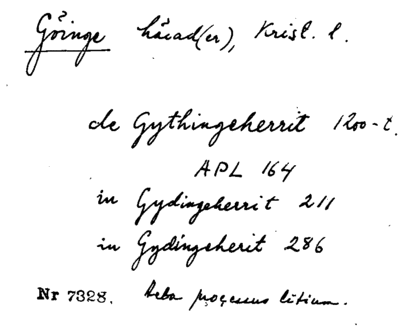 Göinge härad(er), Krist. l.
de Gythingeherrit 1200-t.
APL 164
in Gydingeherrit 211
in Gydingeherit 286
Nr 7328. Acta processus litium.